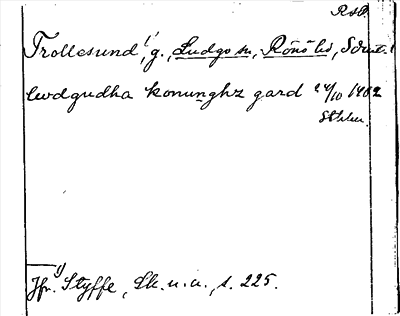 RAP.
Trollesund,¹⁾ g., Ludgo sn, Rönö hd, Södml.
lwdgudha konunghz gard 24/10 1402
Sthlm.
¹⁾ Jfr. Styffe, Sk. u. a., s. 225.